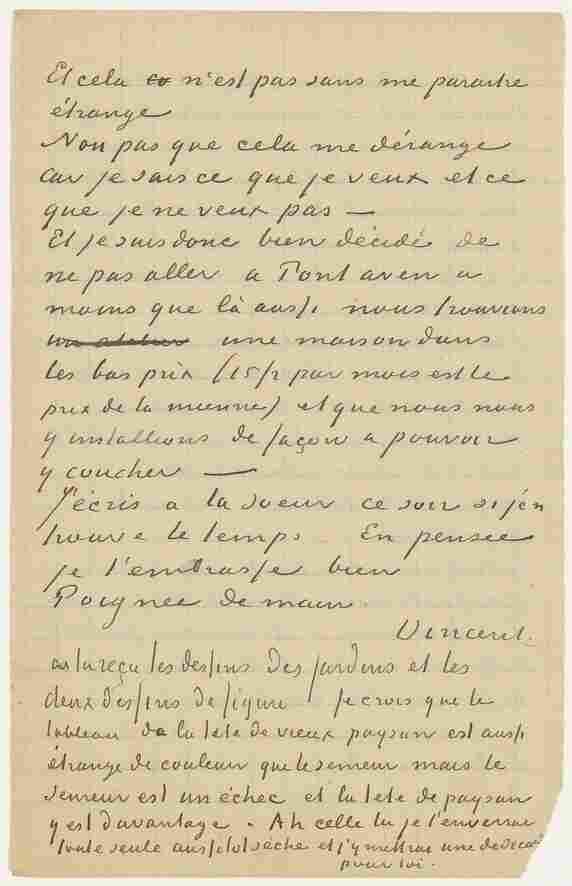 Et cela n'est pas sans me paraitre
étrange
Non pas que cela me dérange
car je sais ce que je veux et ce
que je ne veux pas —
Et je suis donc bien décidé de
ne pas aller a Pont aven a
moins que là aussi nous trouvions
un atelier une maison dans
les bas prix (15 fr par mois est le
prix de la mienne) et que nous nous
y installions de façon a pouvoir
y coucher —
J'écris a la soeur ce soir si j'en
trouve le temps En pensée
je t'embrasse bien
Poignée de main.
Vincent.
as tu reçu les dessins des jardins et les
deux dessins de figure je crois que le
tableau de la tete de vieux paysan est aussi
étrange de couleur que le semeur mais le
semeur est un échec et la tete de paysan
y est davantage. Ah celle la je l'enverrai
toute seule aussitôt seche et j'y mettrai une dedicace
pour toi.